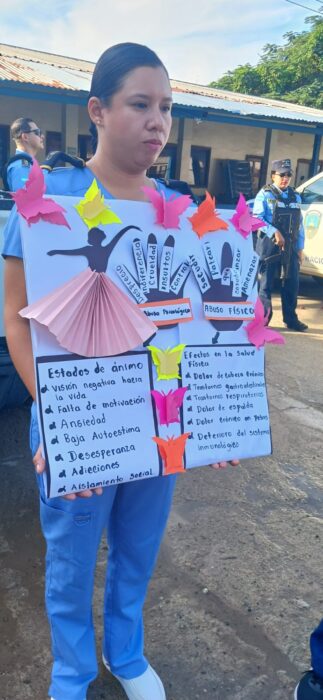 Indiferencia
Desprecio
Crueldad
Insultos
Control
Abuso Psicologico
Sacudir
Golpear
Amenazar
ABUSO FÍSICO
Estados de ánimo
Visión negativa hacia
la vida
Falta de motivación
Ansiedad
Baja Autoestima
Desesperanza
Adicciones
Aislamiento Social
Efectos en la Salud
Física
Dolor de cabeza crónico
Trastornos gastrointestinales
Trastornos respiratorios
Dolor de espalda
Dolor crónico en Pelvis
Deterioro del sistema
inmunológico
NACIONAL